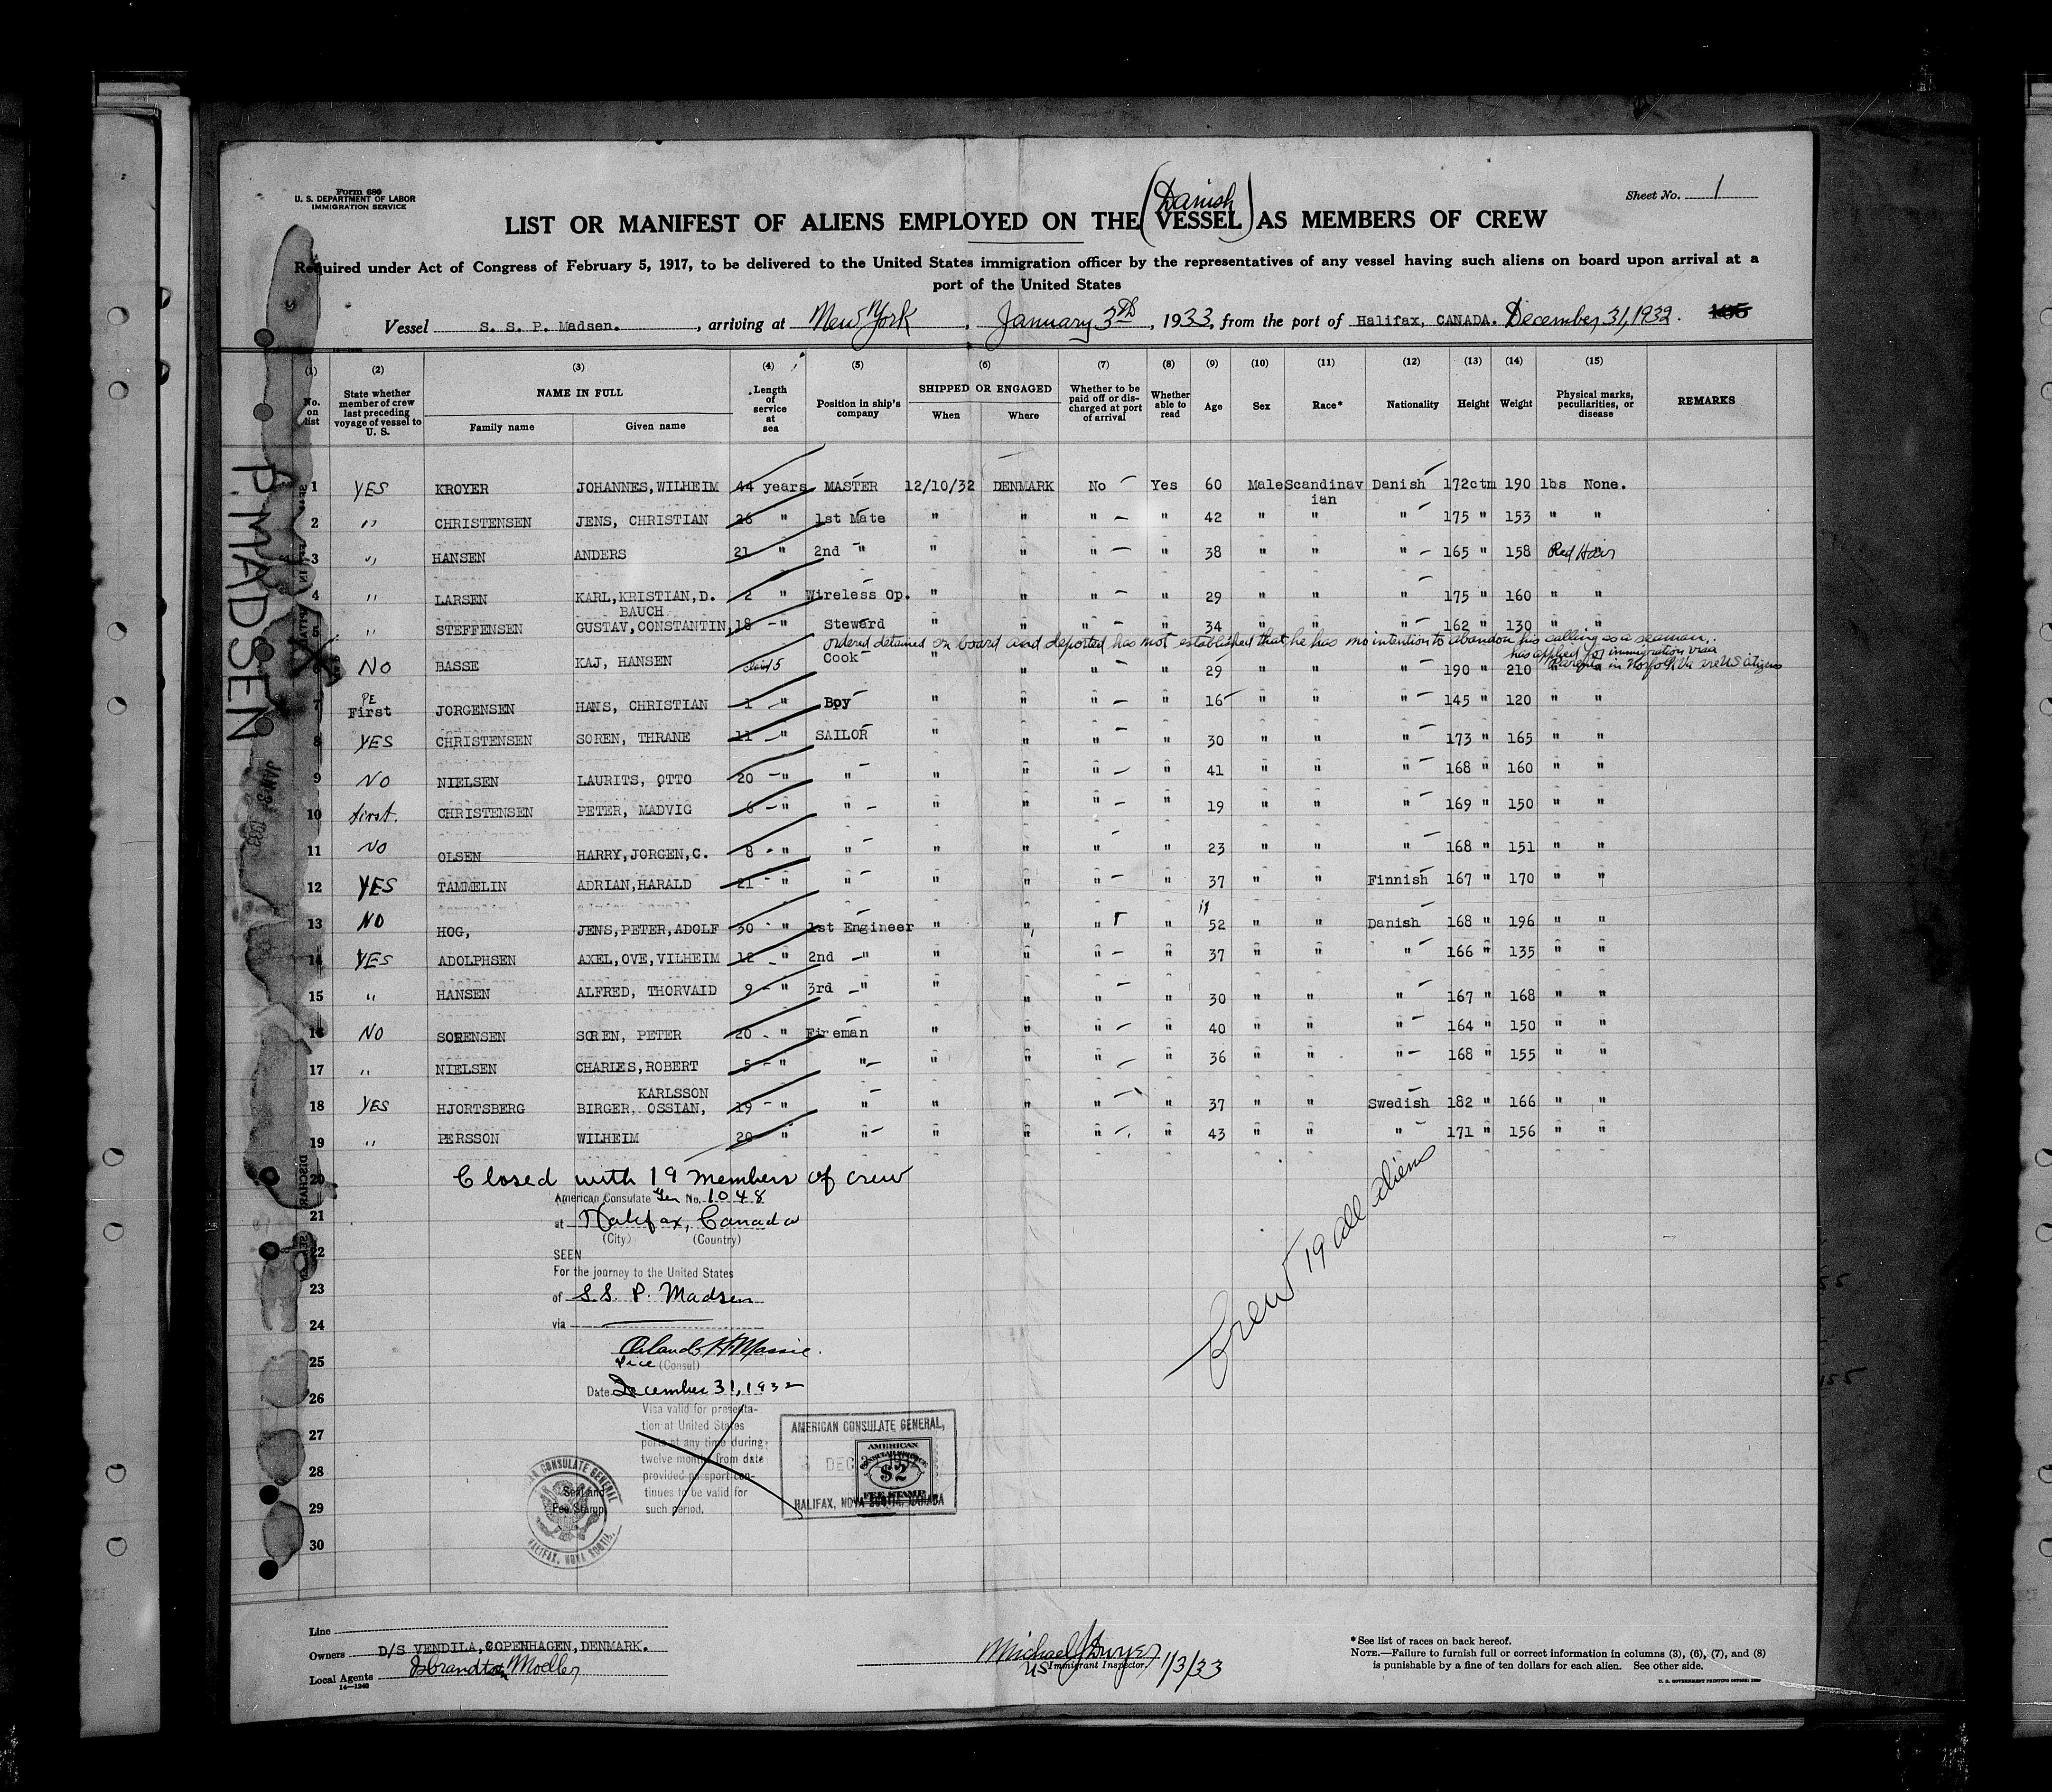 Form 680
U. S. DEPARTMENT OF LABOR
IMMIGRATION SERVICE
Sheet No. 1
(Danish)
LIST OR MANIFEST OF ALIENS EMPLOYED ON THE VESSEL AS MEMBERS OF CREW
Required under Act of Congress of February 5, 1917, to be delivered to the United States immigration officer by the representatives of any vessel having such aliens on board upon arrival at a
port of the United States
Vessel S. S. P. Madsen. , arriving at New York , January 3rd , 1933, from the port of Halifax, CANADA. December 31, 1932.
(1) No. on list
(2) State whether member of crew last preceding voyage of vessel to U. S.
(3) NAME IN FULL
Family name Given name
(4) Length of service at sea
(5) Position in ship's company
(6) SHIPPED OR ENGAGED
When Where
(7) Whether to be paid off or discharged at port of arrival
(8) Whether able to read
(9) Age
(10) Sex
(11) Race*
(12) Nationality
(13) Height
(14) Weight
(15) Physical marks, peculiarities, or disease
REMARKS
P. MADSEN
1 YES KROYER JOHANNES, WILHEIM 44 years MASTER 12/10/32 DENMARK No Yes 60 Male Scandinavian Danish 172ctm 190 lbs None.
2 " CHRISTENSEN JENS, CHRISTIAN 26 " 1st Mate " " " " 42 " " " 175 " 153 " "
3 " HANSEN ANDERS 21 " 2nd " " " " " 38 " " " 165 " 158 Red Hair
4 " LARSEN KARL, KRISTIAN, D. 2 " Wireless Op. " " " " 29 " " " 175 " 160 " "
5 " STEFFENSEN GUSTAV, CONSTANTIN, BAUCH 18 " Steward " " " " 34 " " " 162 " 130 " "
ordered detained on board and deported has not established that he has no intention to abandon his calling as a seaman.
has applied for immigration visa
Parents in Norfolk Va are US citizens
6 No BASSE KAJ, HANSEN 5 Cook " " " " 29 " " " 190 " 210 "
7 First JORGENSEN HANS, CHRISTIAN 1 " Boy " " " " 16 " " " 145 " 120 " "
8 YES CHRISTENSEN SOREN, THRANE 11 " SAILOR " " " " 30 " " " 173 " 165 " "
9 No NIELSEN LAURITS, OTTO 20 " " " " " " 41 " " " 168 " 160 " "
10 first. CHRISTENSEN PETER, MADVIG 6 " " " " " " 19 " " " 169 " 150 " "
11 No OLSEN HARRY, JORGEN, C. 8 " " " " " " 23 " " " 168 " 151 " "
12 YES TAMMELIN ADRIAN, HARALD 21 " " " " " " 37 " " Finnish 167 " 170 " "
13 NO HOG, JENS, PETER, ADOLF 30 " 1st Engineer " " " " 52 " " Danish 168 " 196 " "
14 YES ADOLPHSEN AXEL, OVE, VILHEIM 12 " 2nd " " " " " 37 " " " 166 " 135 " "
15 " HANSEN ALFRED, THORVAID 9 " 3rd " " " " " 30 " " " 167 " 168 " "
16 NO SORENSEN SOREN, PETER 20 " Fireman " " " " 40 " " " 164 " 150 " "
17 " NIELSEN CHARLES, ROBERT 5 " " " " " " 36 " " " 168 " 155 " "
18 YES HJORTSBERG BIRGER, OSSIAN, KARLSSON 19 " " " " " " 37 " " Swedish 182 " 166 " "
19 " PERSSON WILHEIM 20 " " " " " " 43 " " " 171 " 156 " "
20 Closed with 19 members of crew
American Consulate Gen No. 1048
21 at Halifax, Canada
(City) (Country)
22 SEEN
For the journey to the United States
23 of S.S. P. Madsen
24 via
Orlando H Massie.
25 Vice (Consul)
Date December 31, 1932
26
27
28
29
30
Crew 19 all aliens
Visa valid for presenta-
tion at United States
ports at any time during
twelve months from date
provided passport con-
tinues to be valid for
such period.
Seal and
Fee Stamp
AMERICAN CONSULATE GENERAL,
HALIFAX, NOVA SCOTIA, CANADA
AMERICAN
$2
FEE STAMP
Line
Owners D/S VENDILA, COPENHAGEN, DENMARK.
Local Agents Isbrandtsen Moller
14—1240
Michael J Dwyer
US Immigrant Inspector. 1/3/33
*See list of races on back hereof.
NOTE.—Failure to furnish full or correct information in columns (3), (6), (7), and (8)
is punishable by a fine of ten dollars for each alien. See other side.